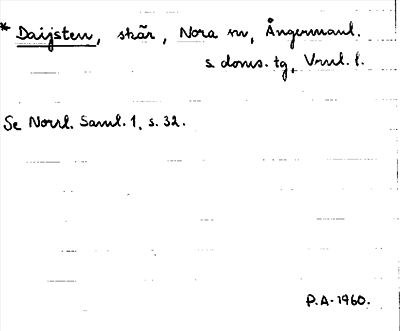 * Daijsten, skär, Nora sn, Ångermanl.
s. doms. tg, Vrml. l.
Se Norrl. Saml. 1, s. 32.
P.A. 1960.